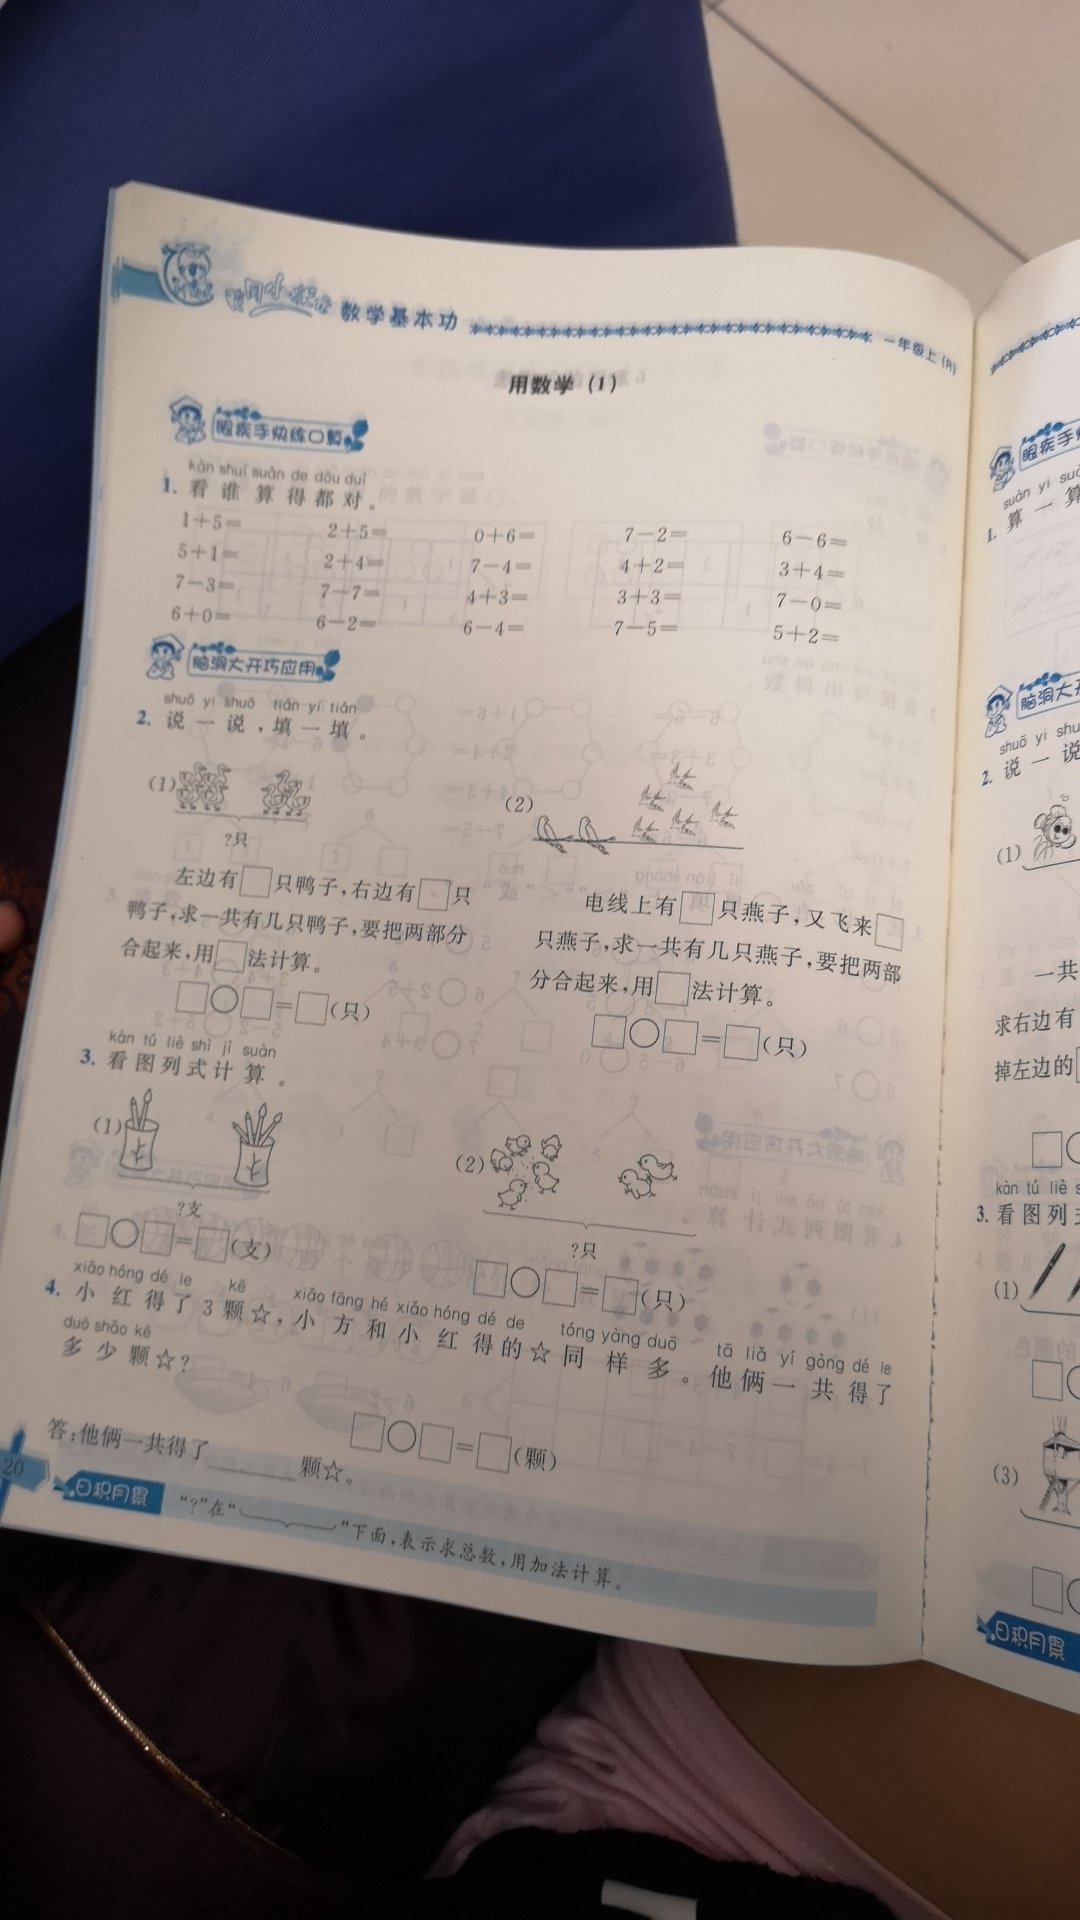 数学基本功
一年级上(R)
用数学(1)
眼疾手快练口算
kàn shuí suàn de dōu duì
1. 看谁算得都对。
1+5= 2+5= 0+6= 7-2= 6-6=
5+1= 2+4= 7-4= 4+2= 3+4=
7-3= 7-7= 4+3= 3+3= 7-0=
6+0= 6-2= 6-4= 7-5= 5+2=
脑洞大开巧应用
shuō yi shuō tián yi tián
2. 说一说,填一填。
(1)
?只
左边有□只鸭子,右边有□只
鸭子,求一共有几只鸭子,要把两部分
合起来,用□法计算。
□○□=□(只)
(2)
电线上有□只燕子,又飞来□
只燕子,求一共有几只燕子,要把两部
分合起来,用□法计算。
□○□=□(只)
kàn tú liè shì jì suàn
3. 看图列式计算。
(1)
?支
□○□=□(支)
(2)
?只
□○□=□(只)
xiǎo hóng dé le kē xiǎo fāng hé xiǎo hóng dé de tóng yàng duō tā liǎ yí gòng dé le
4. 小红得了3颗☆,小方和小红得的☆同样多。他俩一共得了
duō shǎo kē
多少颗☆?
□○□=□(颗)
答:他俩一共得了______颗☆。
20
日积月累
“?”在“⏟”下面,表示求总数,用加法计算。
眼疾手
suàn yi suà
1. 算一算
脑洞大开
shuō yi shu
2. 说一说
(1)
一共
求右边有
掉左边的
□○
kàn tú liè s
3. 看图列式
(1)
□○
(3)
□○
日积月累